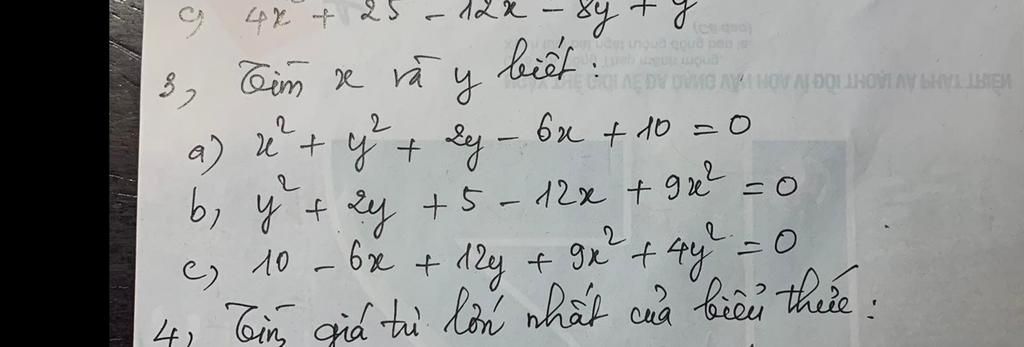 c) 4x² + 25 - 12x - 8y + y
3, Tìm x và y biết:
a) x² + y² + 2y - 6x + 10 = 0
b, y² + 2y + 5 - 12x + 9x² = 0
c, 10 - 6x + 12y + 9x² + 4y² = 0
4, Tìm giá trị lớn nhất của biểu thức: